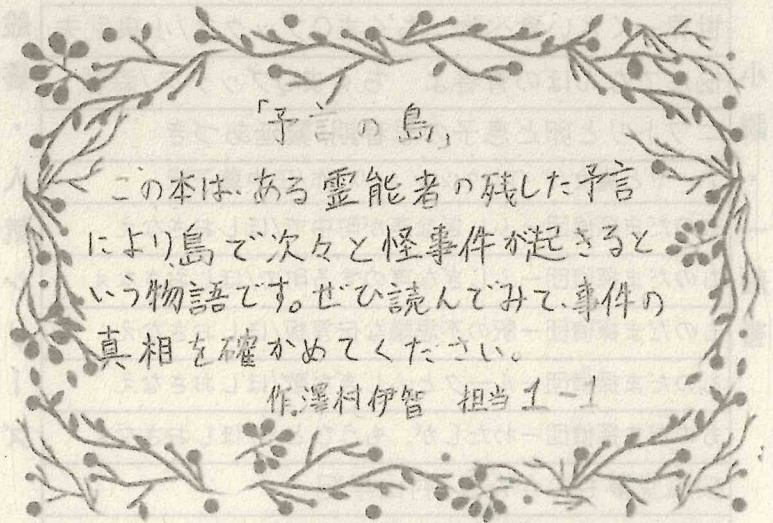 「予言の島」
この本は、ある霊能者の残した予言
により島で次々と怪事件が起きると
いう物語です。ぜひ読んでみて、事件の
真相を確かめてください。
作,澤村伊智 担当 1-1